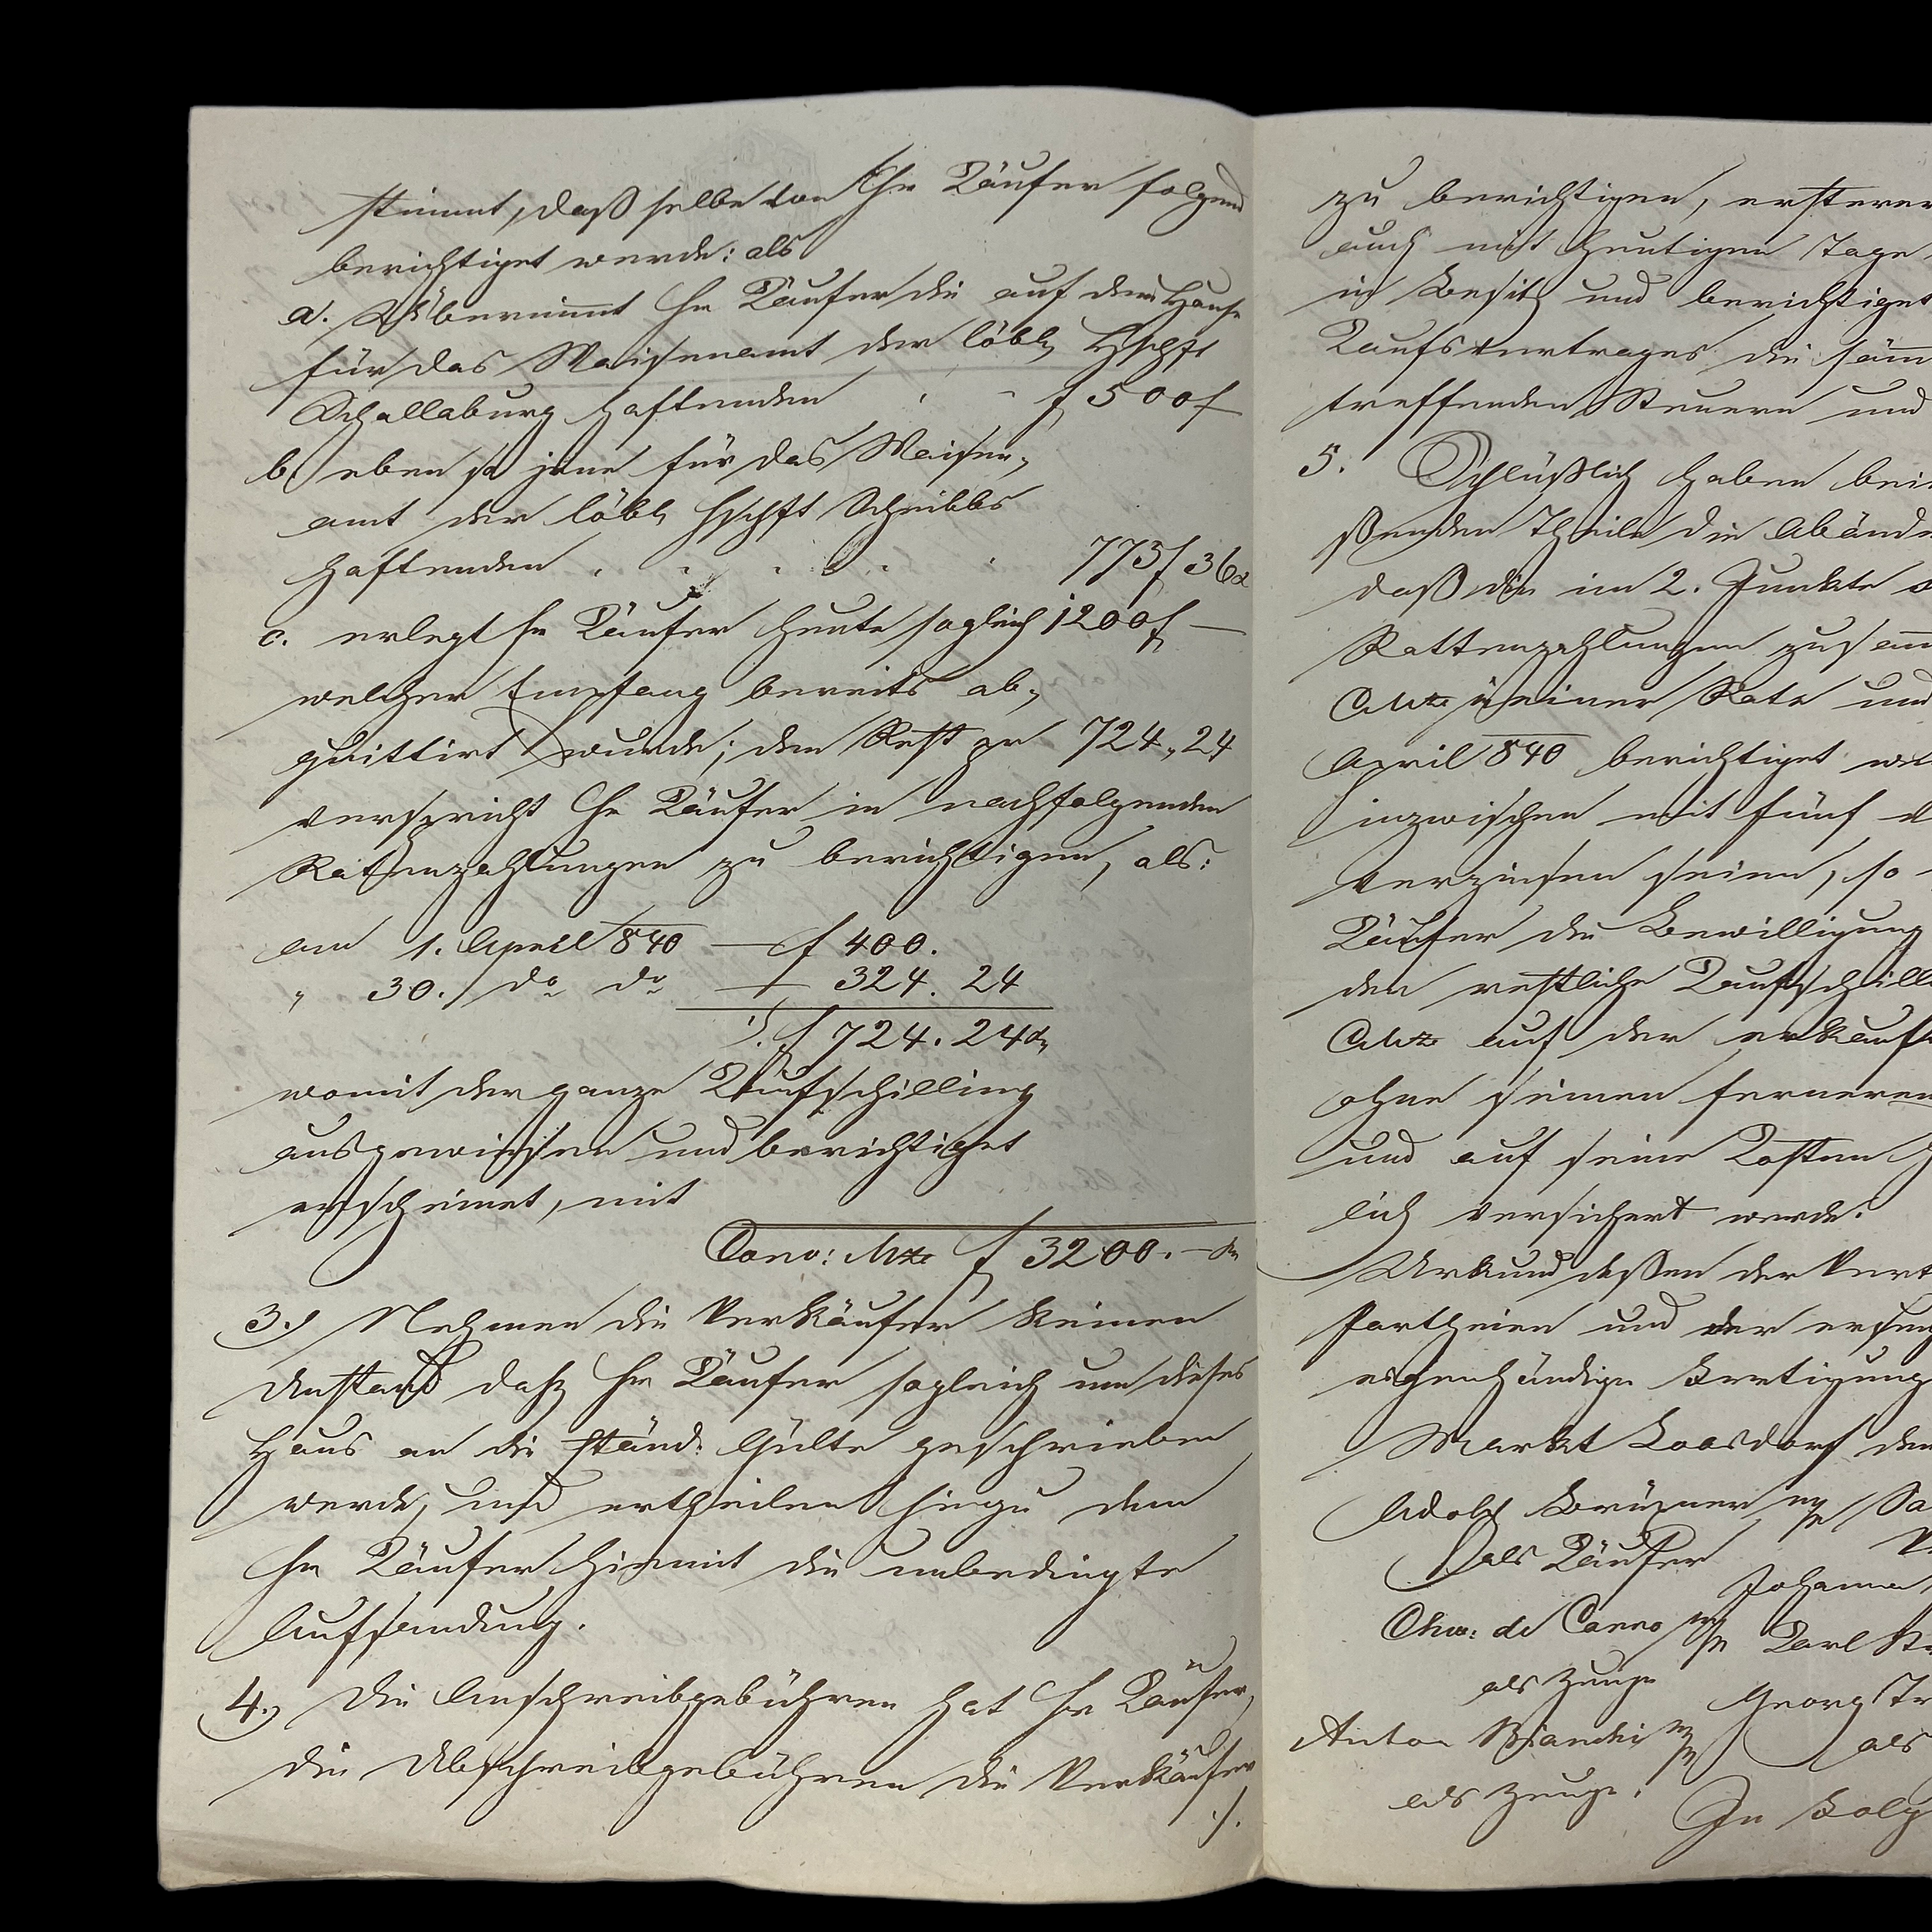 stimmt, daß selbe von Hr Käufer folgend
berichtiget werde: als
a. Übernimmt Hr Käufer die auf dem Hause
für das Waisenamt der löbl Hschft
Schallaburg haftenden f 500 f
b. eben so jene für das Waisen-
amt der löbl Hschft Scheibbs
haftenden 773 f 36 x
c. erlegt Hr Käufer heute sogleich 1200 f —
welcher Empfang bereits ab-
quittirt wurde; den Rest pr 724 „ 24
verspricht Hr Käufer in nachfolgenden
Ratenzahlungen zu berichtigen, als:
am 1. April 840 — f 400.
„ 30. do do — 324. 24
f 724. 24 x
womit der ganze Kaufschilling
ausgewiesen und berichtiget
erscheinet, mit
Conv: Mze f 3200. — x
3.) Nehmen die Verkäufer keinen
Anstand daß Hr Käufer sogleich um dieses
Haus an die ständ. Gülte geschrieben
werde, und ertheilen hiezu dem
Hr Käufer hiemit die unbedingte
Aufsandung.
4.) Die Anschreibgebühren hat Hr Käufer,
die Abschreibgebühren die Verkäufer
./.
zu berichtigen, ersterer
auch mit heutigen Tage
in Besitz und berichtiget
Kaufsvertrages die säm
treffenden Steuern und
5. Schlüßlich haben bei
ßenden Theile die Abände
daß die im 2. Punkte
Rattenzahlungen zusam
CMze in einer Rate und
April 840 berichtiget
inzwischen mit fünf
verzinsen seien, so
Käufer die Bewilligung
den restliche Kaufschill
CMze auf der erkauft
ohne seinen ferneren
und auf seine Kosten
lich versichert werde.
Urkund dessen der Vert
Partheien und der ersu
eigenhändige Fertigung
Markt Loosdorf den
Adolf Brüzner mp Sa
als Käufer
Johanna
Chr: de Carro mp Karl
als Zeuge
Georg Tr
Anton Bianchi mp als
als Zeuge.
In Folg